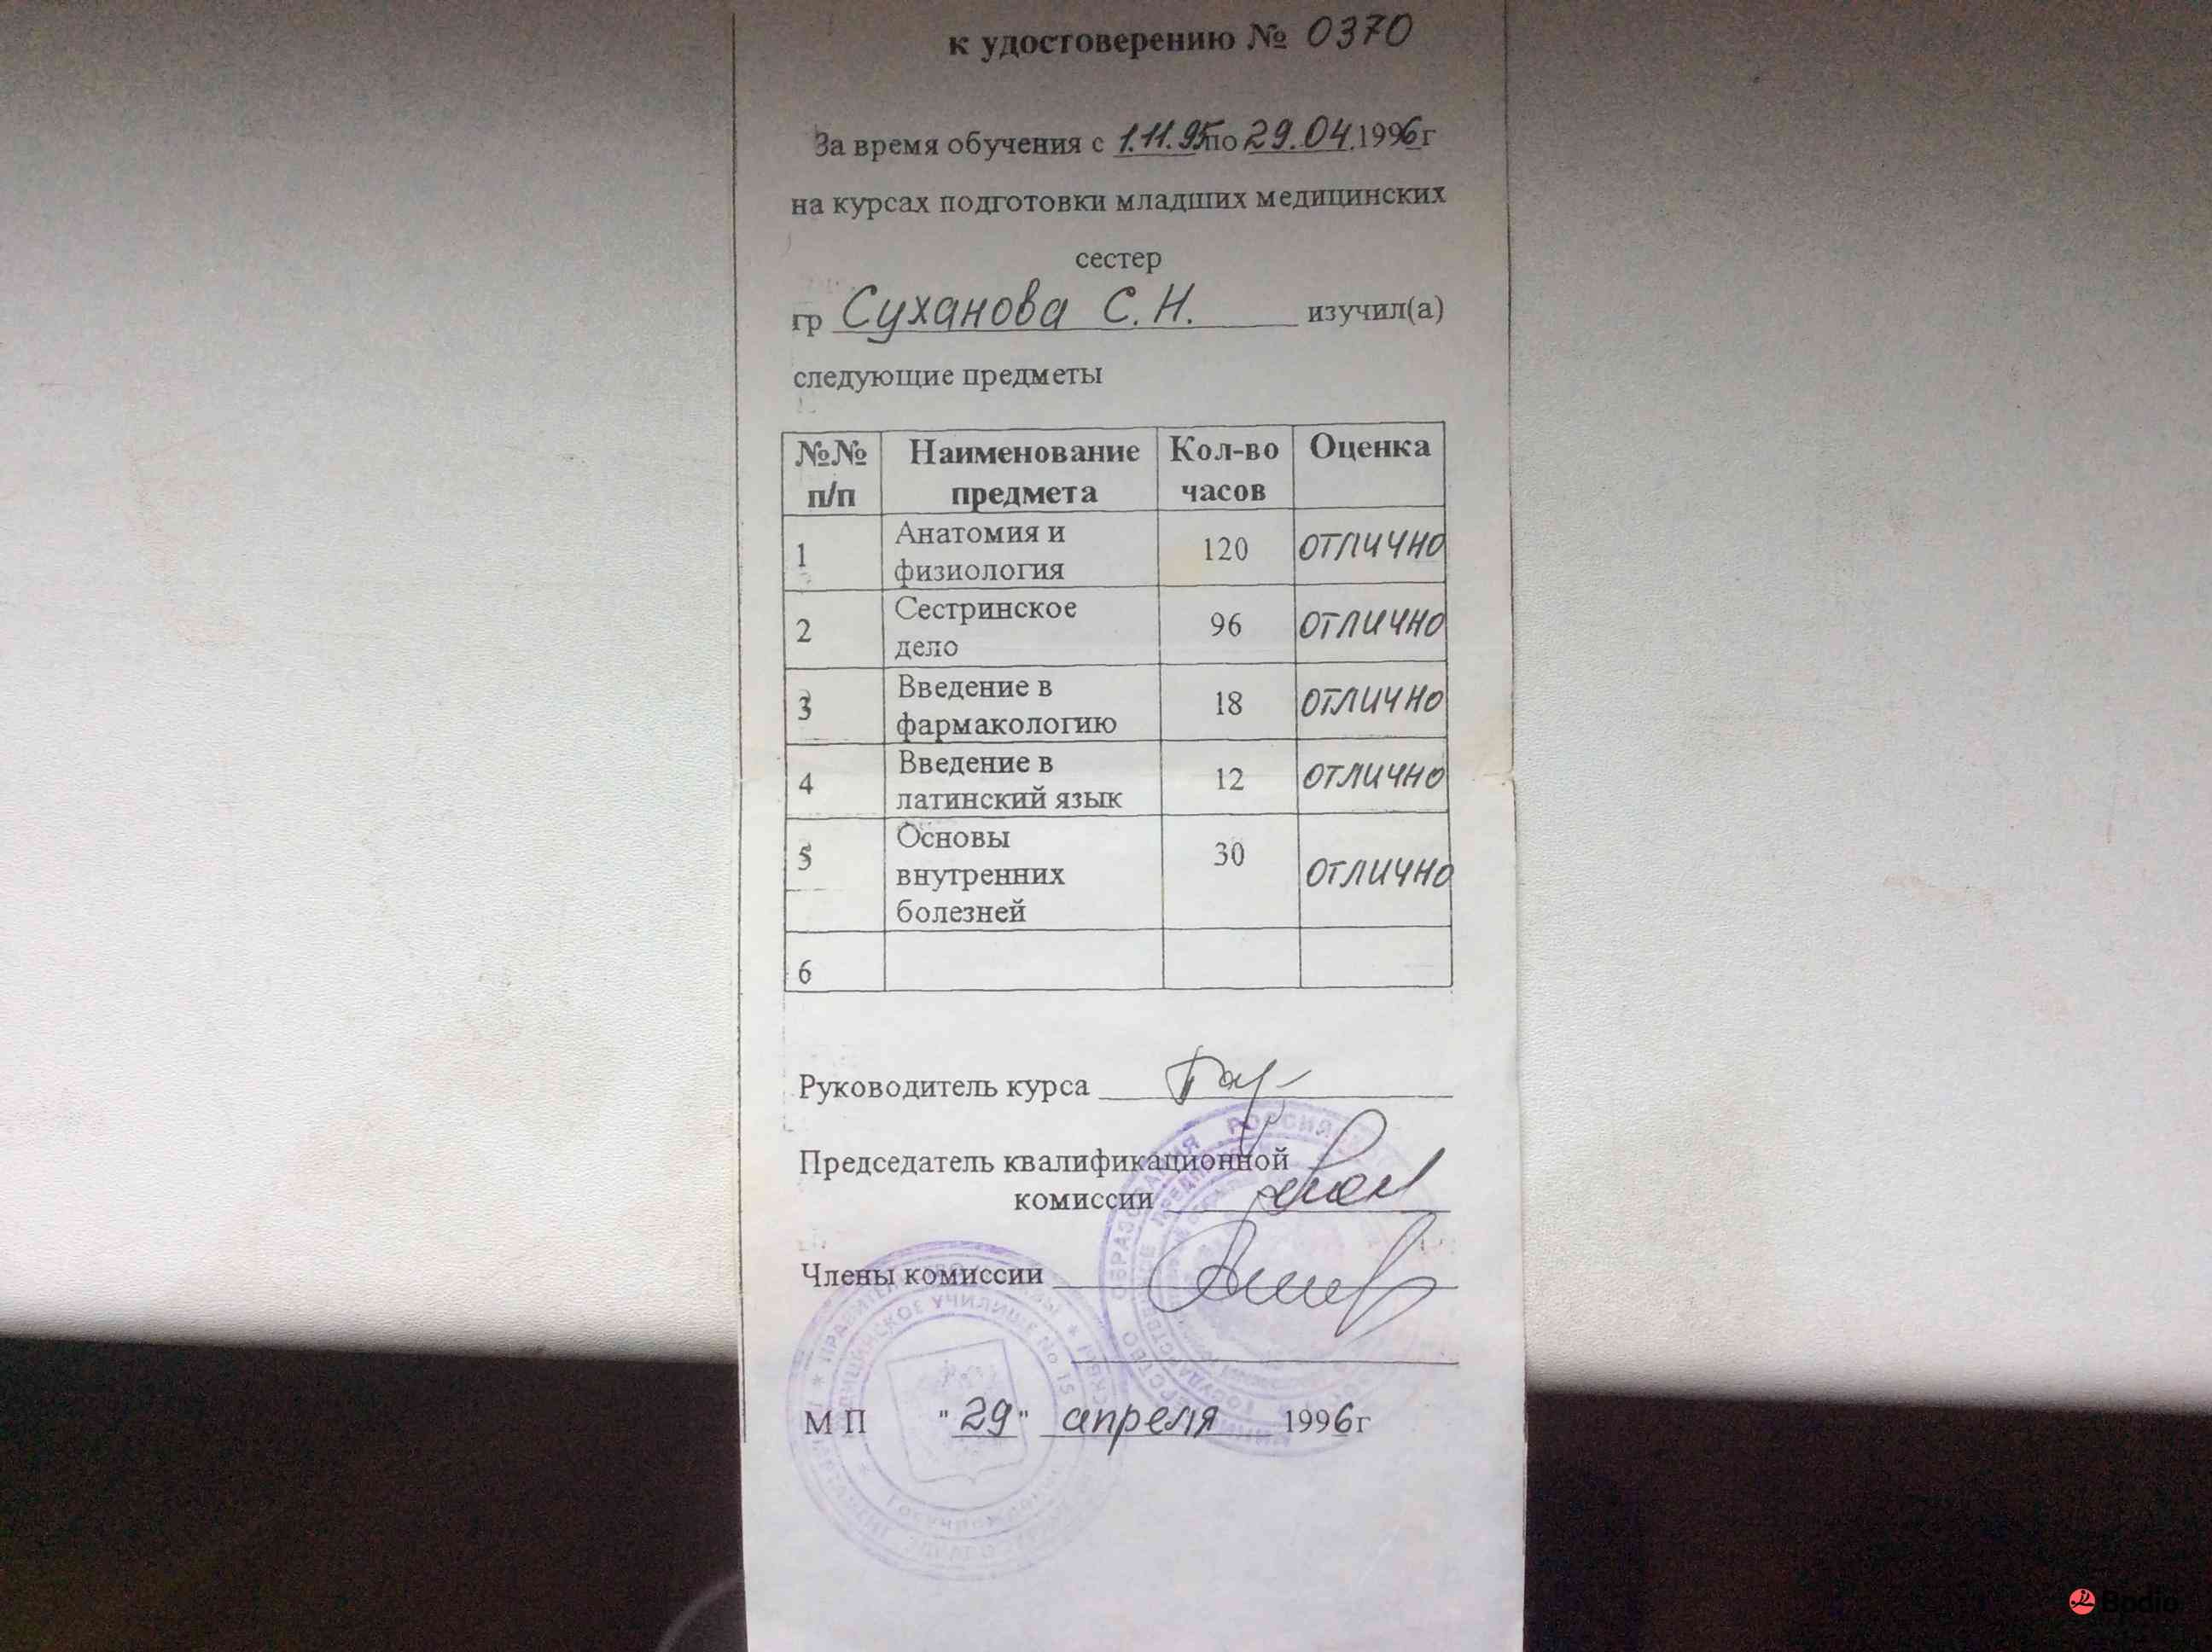 к удостоверению № 0370
За время обучения с 1.11.95 по 29.04.1996г
на курсах подготовки младших медицинских
сестер
гр Суханова С.Н. изучил(а)
следующие предметы
№№ п/п Наименование предмета Кол-во часов Оценка
1 Анатомия и физиология 120 отлично
2 Сестринское дело 96 отлично
3 Введение в фармакологию 18 отлично
4 Введение в латинский язык 12 отлично
5 Основы внутренних болезней 30 отлично
6
Руководитель курса
Председатель квалификационной
комиссии
Члены комиссии
МП "29" апреля 1996г
ОБРАЗОВАНИЯ РОССИЯ
УЧИЛИЩЕ № 15
Bodio